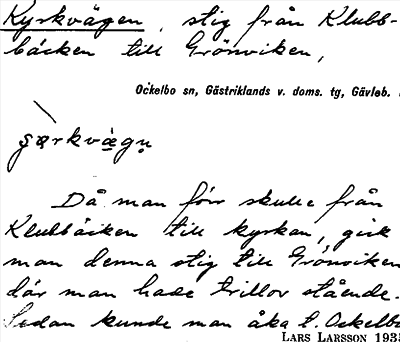 Kyrkvägen, stig från Klubb-
bäcken till Grönviken,
Ockelbo sn, Gästriklands v. doms. tg, Gävleb.
Då man förr skulle från
Klubbäcken till kyrkan, gick
man denna stig till Grönviken
där man hade trillor stående.
Sedan kunde man åka t. Ockelbo
LARS LARSSON 1935